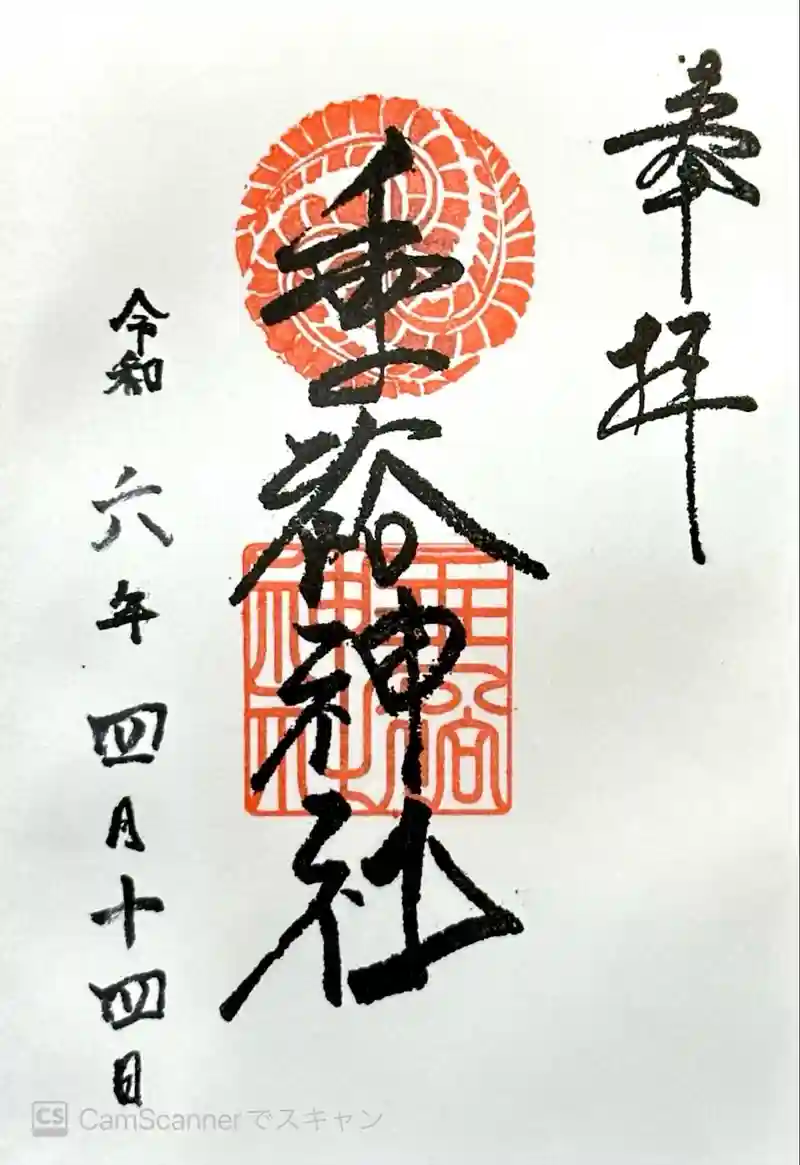 奉拝
垂裕神社
垂裕
神社
令和六年四月十四日
CS CamScannerでスキャン